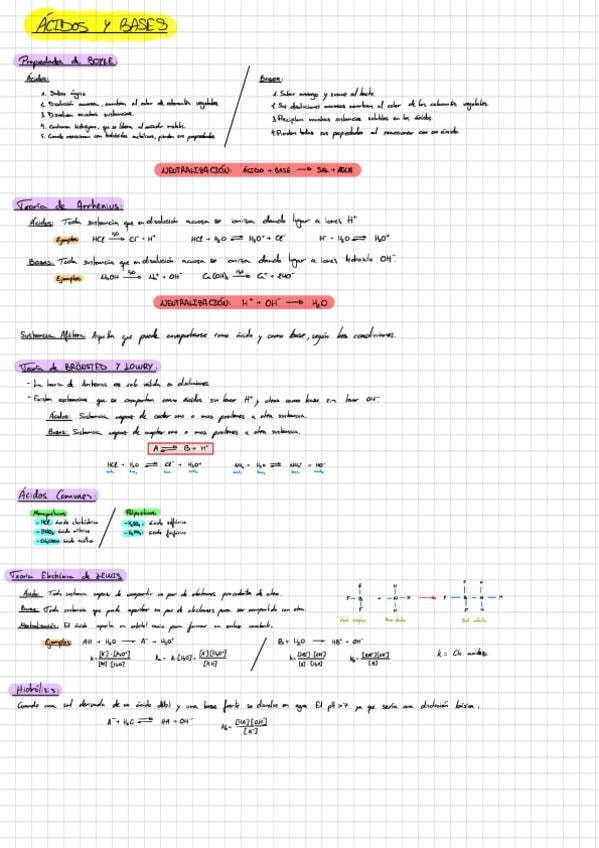 ÁCIDOS Y BASES
Propiedades de BOYLE
Ácidos:
1. Sabor agrio
2. Disolución acuosa, cambian el color de colorantes vegetales.
3. Disuelven muchas sustancias.
4. Contienen hidrógeno, que se libera al añadir metales.
5. Cuando reaccionan con hidróxidos metálicos, pierden sus propiedades.
Bases:
1. Sabor amargo y suave al tacto.
2. Sus disoluciones acuosas cambian el color de los colorantes vegetales.
3. Precipitan muchas sustancias solubles en los ácidos.
4. Pierden todas sus propiedades al reaccionar con un ácido.
NEUTRALIZACIÓN: ÁCIDO + BASE → SAL + AGUA
Teoría de Arrhenius:
Ácidos: Toda sustancia que en disolución acuosa se ioniza dando lugar a iones H⁺
Ejemplos
Bases: Toda sustancia que en disolución acuosa se ioniza dando lugar a iones hidroxilo OH⁻.
Ejemplos
NEUTRALIZACIÓN: H⁺ + OH⁻ → H₂O
Sustancia Anfótera: Aquella que puede comportarse como ácido y como base, según las condiciones.
Teoría de BRÖNSTED Y LOWRY:
- La teoría de Arrhenius es solo válida en disoluciones
- Existen sustancias que se comportan como ácidos sin tener H⁺ y otras como base sin tener OH⁻
Ácidos: Sustancia capaz de ceder uno o mas protones a otra sustancia.
Bases: Sustancia capaz de aceptar uno o mas protones a otra sustancia.
A ⇌ B + H⁺
HCl + H₂O ⇌ Cl⁻ + H₃O⁺ NH₃ + H₂O ⇌ NH₄⁺ + HO⁻
Ácidos Comunes:
Monopróticos:
- HCl: ácido clorhídrico
- HNO₃: ácido nítrico
- CH₃COOH: ácido acético
Polipróticos:
- H₂SO₄: ácido sulfúrico
- H₃PO₄: ácido fosfórico
Teoría Electrónica de LEWIS
Ácido: Toda sustancia capaz de compartir un par de electrones procedentes de otra.
Base: Toda sustancia que puede aportar un par de electrones para ser compartido con otra.
Neutralización: El ácido aporta un orbital vacío para formar un enlace covalente.
Ejemplos AH + H₂O → A⁻ + H₃O⁺ B + H₂O → HB⁺ + OH⁻
Hidrólisis:
Cuando una sal derivada de un ácido débil y una base fuerte se disuelve en agua. El pH > 7 ya que sería una disolución básica.
A⁻ + H₂O ⇌ HA + OH⁻ Kh = [HA][OH⁻] / [A⁻]